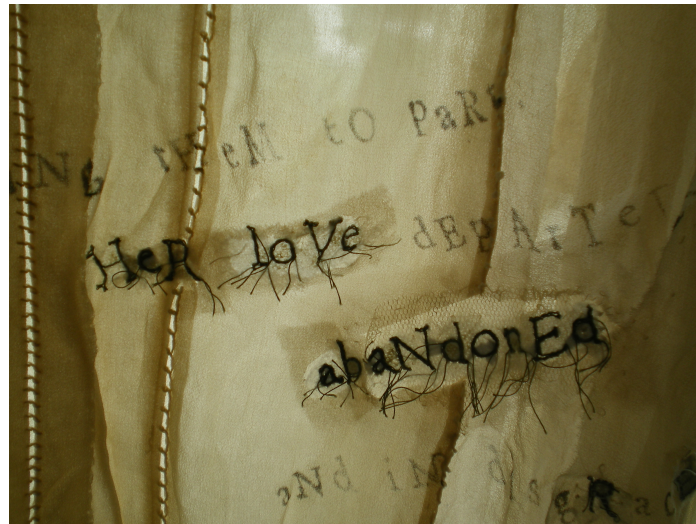 tHEM tO PaRt
HeR loVe dEPArTeT
abaNdonEd
aNd iN disgRac